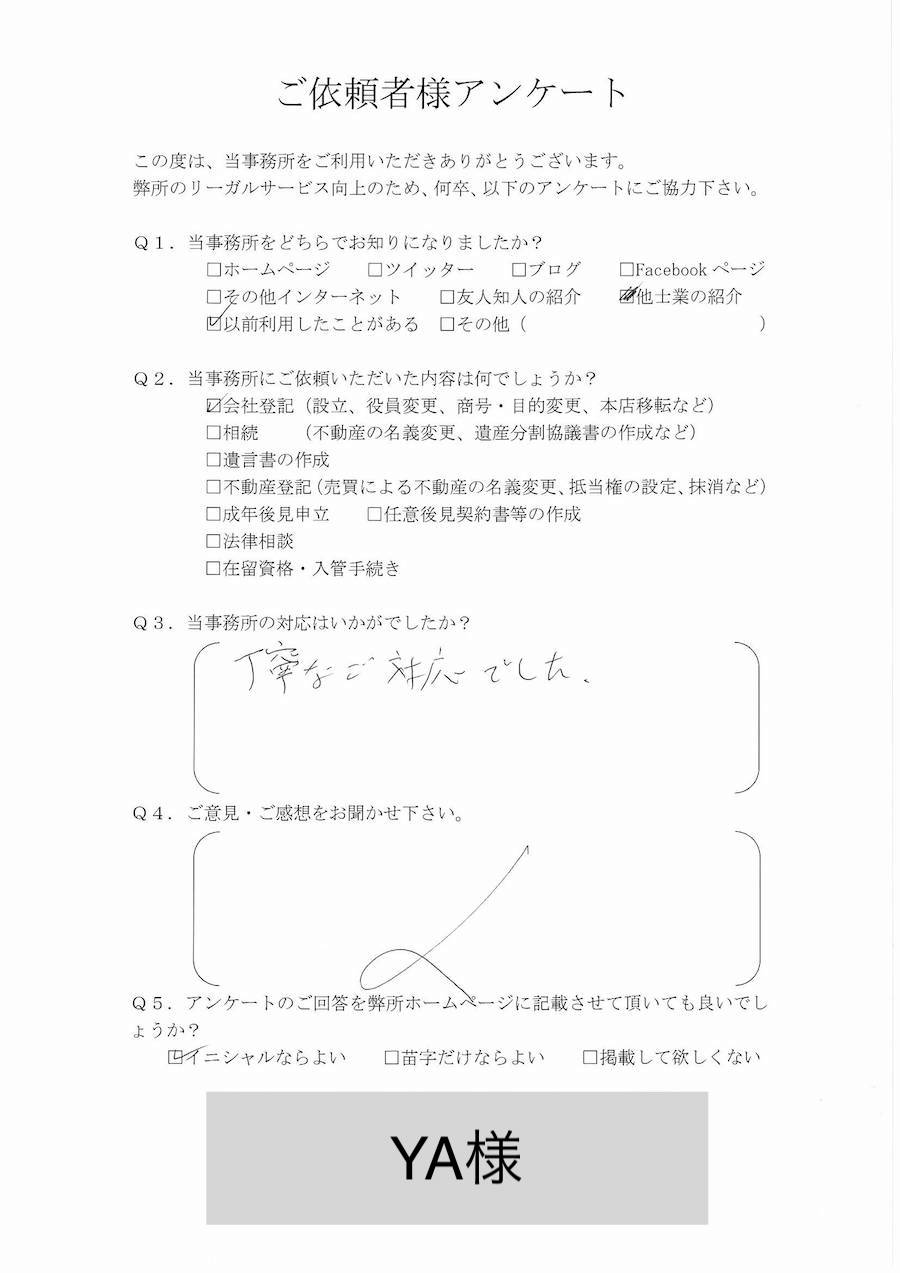 ご依頼者様アンケート
この度は、当事務所をご利用いただきありがとうございます。
弊所のリーガルサービス向上のため、何卒、以下のアンケートにご協力下さい。
Q1．当事務所をどちらでお知りになりましたか？
□ホームページ　□ツイッター　□ブログ　□Facebookページ
□その他インターネット　□友人知人の紹介　☑他士業の紹介
☑以前利用したことがある　□その他（　　　　　　　　　　）
Q2．当事務所にご依頼いただいた内容は何でしょうか？
☑会社登記（設立、役員変更、商号・目的変更、本店移転など）
□相続　　（不動産の名義変更、遺産分割協議書の作成など）
□遺言書の作成
□不動産登記（売買による不動産の名義変更、抵当権の設定、抹消など）
□成年後見申立　□任意後見契約書等の作成
□法律相談
□在留資格・入管手続き
Q3．当事務所の対応はいかがでしたか？
丁寧なご対応でした．
Q4．ご意見・ご感想をお聞かせ下さい。
Q5．アンケートのご回答を弊所ホームページに記載させて頂いても良いでし
ょうか？
☑イニシャルならよい　□苗字だけならよい　□掲載して欲しくない
YA様